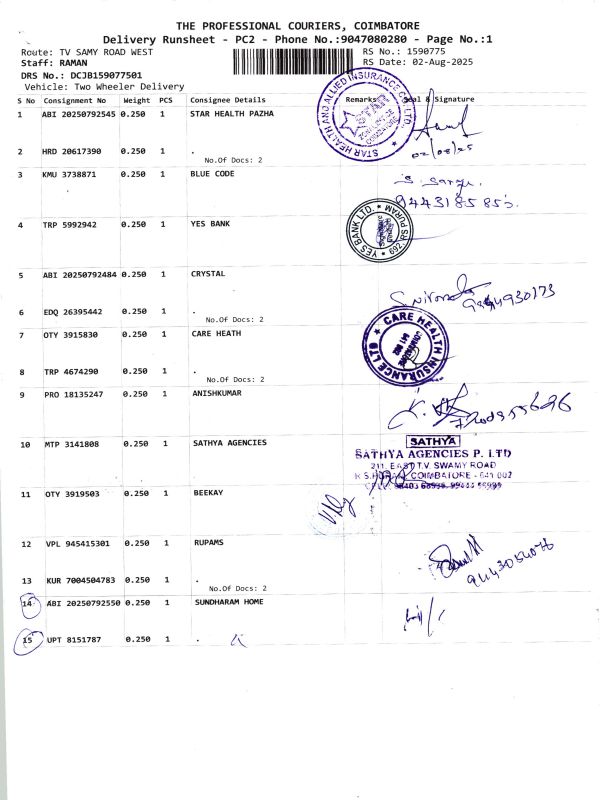 THE PROFESSIONAL COURIERS, COIMBATORE
Delivery Runsheet - PC2 - Phone No.:9047080280 - Page No.:1
Route: TV SAMY ROAD WEST RS No.: 1590775
Staff: RAMAN RS Date: 02-Aug-2025
DRS No.: DCJB159077501
Vehicle: Two Wheeler Delivery
S No Consignment No Weight PCS Consignee Details Remarks Seal & Signature
1 ABI 20250792545 0.250 1 STAR HEALTH PAZHA
STAR HEALTH AND ALLIED INSURANCE CO. LTD.
COIMBATORE
02/08/25
2 HRD 20617390 0.250 1 .
No.Of Docs: 2
3 KMU 3738871 0.250 1 BLUE CODE
9443185855
4 TRP 5992942 0.250 1 YES BANK
YES BANK LTD. * 269 RS PURAM
5 ABI 20250792484 0.250 1 CRYSTAL
6 EDQ 26395442 0.250 1 .
No.Of Docs: 2
7 OTY 3915830 0.250 1 CARE HEATH
CARE HEALTH INSURANCE LTD
COIMBATORE
641 002
8 TRP 4674290 0.250 1 .
No.Of Docs: 2
9 PRO 18135247 0.250 1 ANISHKUMAR
10 MTP 3141808 0.250 1 SATHYA AGENCIES
SATHYA
SATHYA AGENCIES P. LTD
211, EAST T.V. SWAMY ROAD
R.S.PURAM, COIMBATORE - 641 002
11 OTY 3919503 0.250 1 BEEKAY
12 VPL 945415301 0.250 1 RUPAMS
13 KUR 7004504783 0.250 1 .
No.Of Docs: 2
14 ABI 20250792550 0.250 1 SUNDHARAM HOME
15 UPT 8151787 0.250 1 .